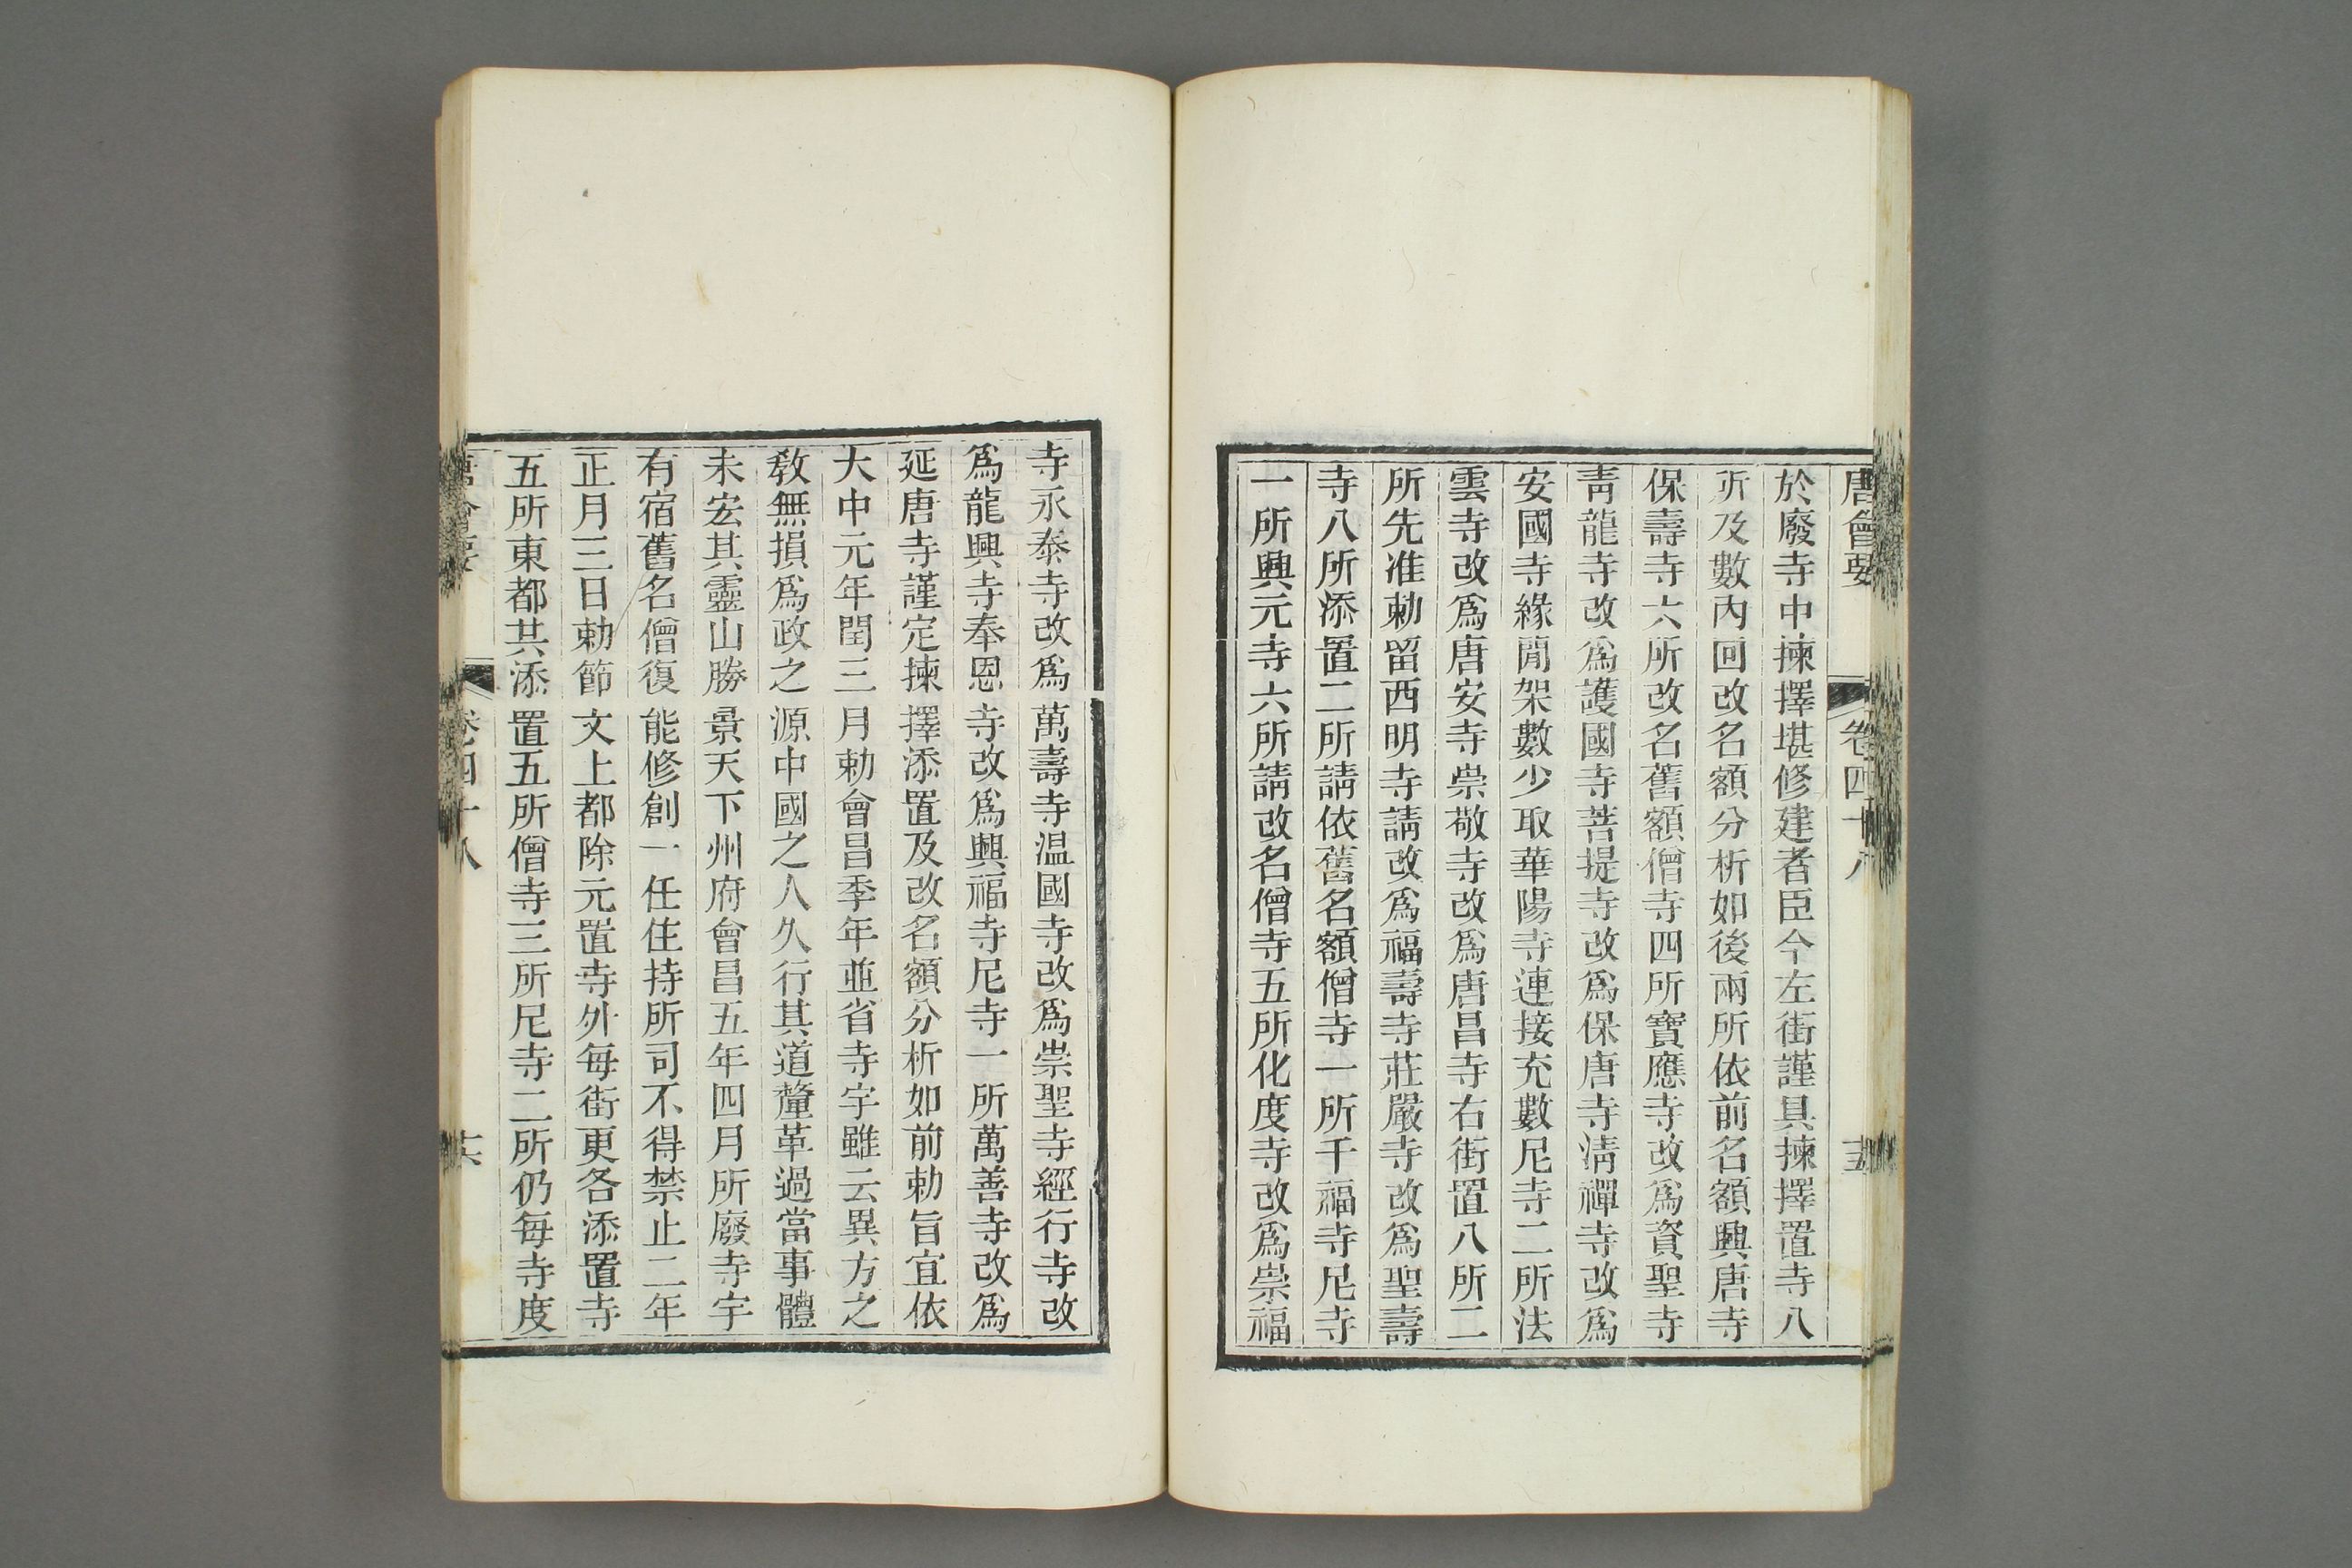 唐會要 卷四十八 十五
於廢寺中揀擇堪修建者臣今左街謹具揀擇置寺八
所及數內回改名額分析如後兩所依前名額興唐寺
保壽寺六所改名舊額僧寺四所寶應寺改爲資聖寺
靑龍寺改爲護國寺菩提寺改爲保唐寺淸禪寺改爲
安國寺緣閒架數少取華陽寺連接充數尼寺二所法
雲寺改爲唐安寺崇敬寺改爲唐昌寺右街置八所二
所先准勅留西明寺請改爲福壽寺莊嚴寺改爲聖壽
寺八所添置二所請依舊名額僧寺一所千福寺尼寺
一所興元寺六所請改名僧寺五所化度寺改爲崇福
寺永泰寺改爲萬壽寺温國寺改爲崇聖寺經行寺改
爲龍興寺奉恩寺改爲興福寺尼寺一所萬善寺改爲
延唐寺謹定揀擇添置及改名額分析如前勅旨宜依
大中元年閏三月勅會昌季年並省寺宇雖云異方之
敎無損爲政之源中國之人久行其道釐革過當事體
未宏其靈山勝景天下州府會昌五年四月所廢寺宇
有宿舊名僧復能修創一任住持所司不得禁止二年
正月三日勅節文上都除元置寺外每街更各添置寺
五所東都共添置五所僧寺三所尼寺二所仍每寺度
唐會要 卷四十八 十六